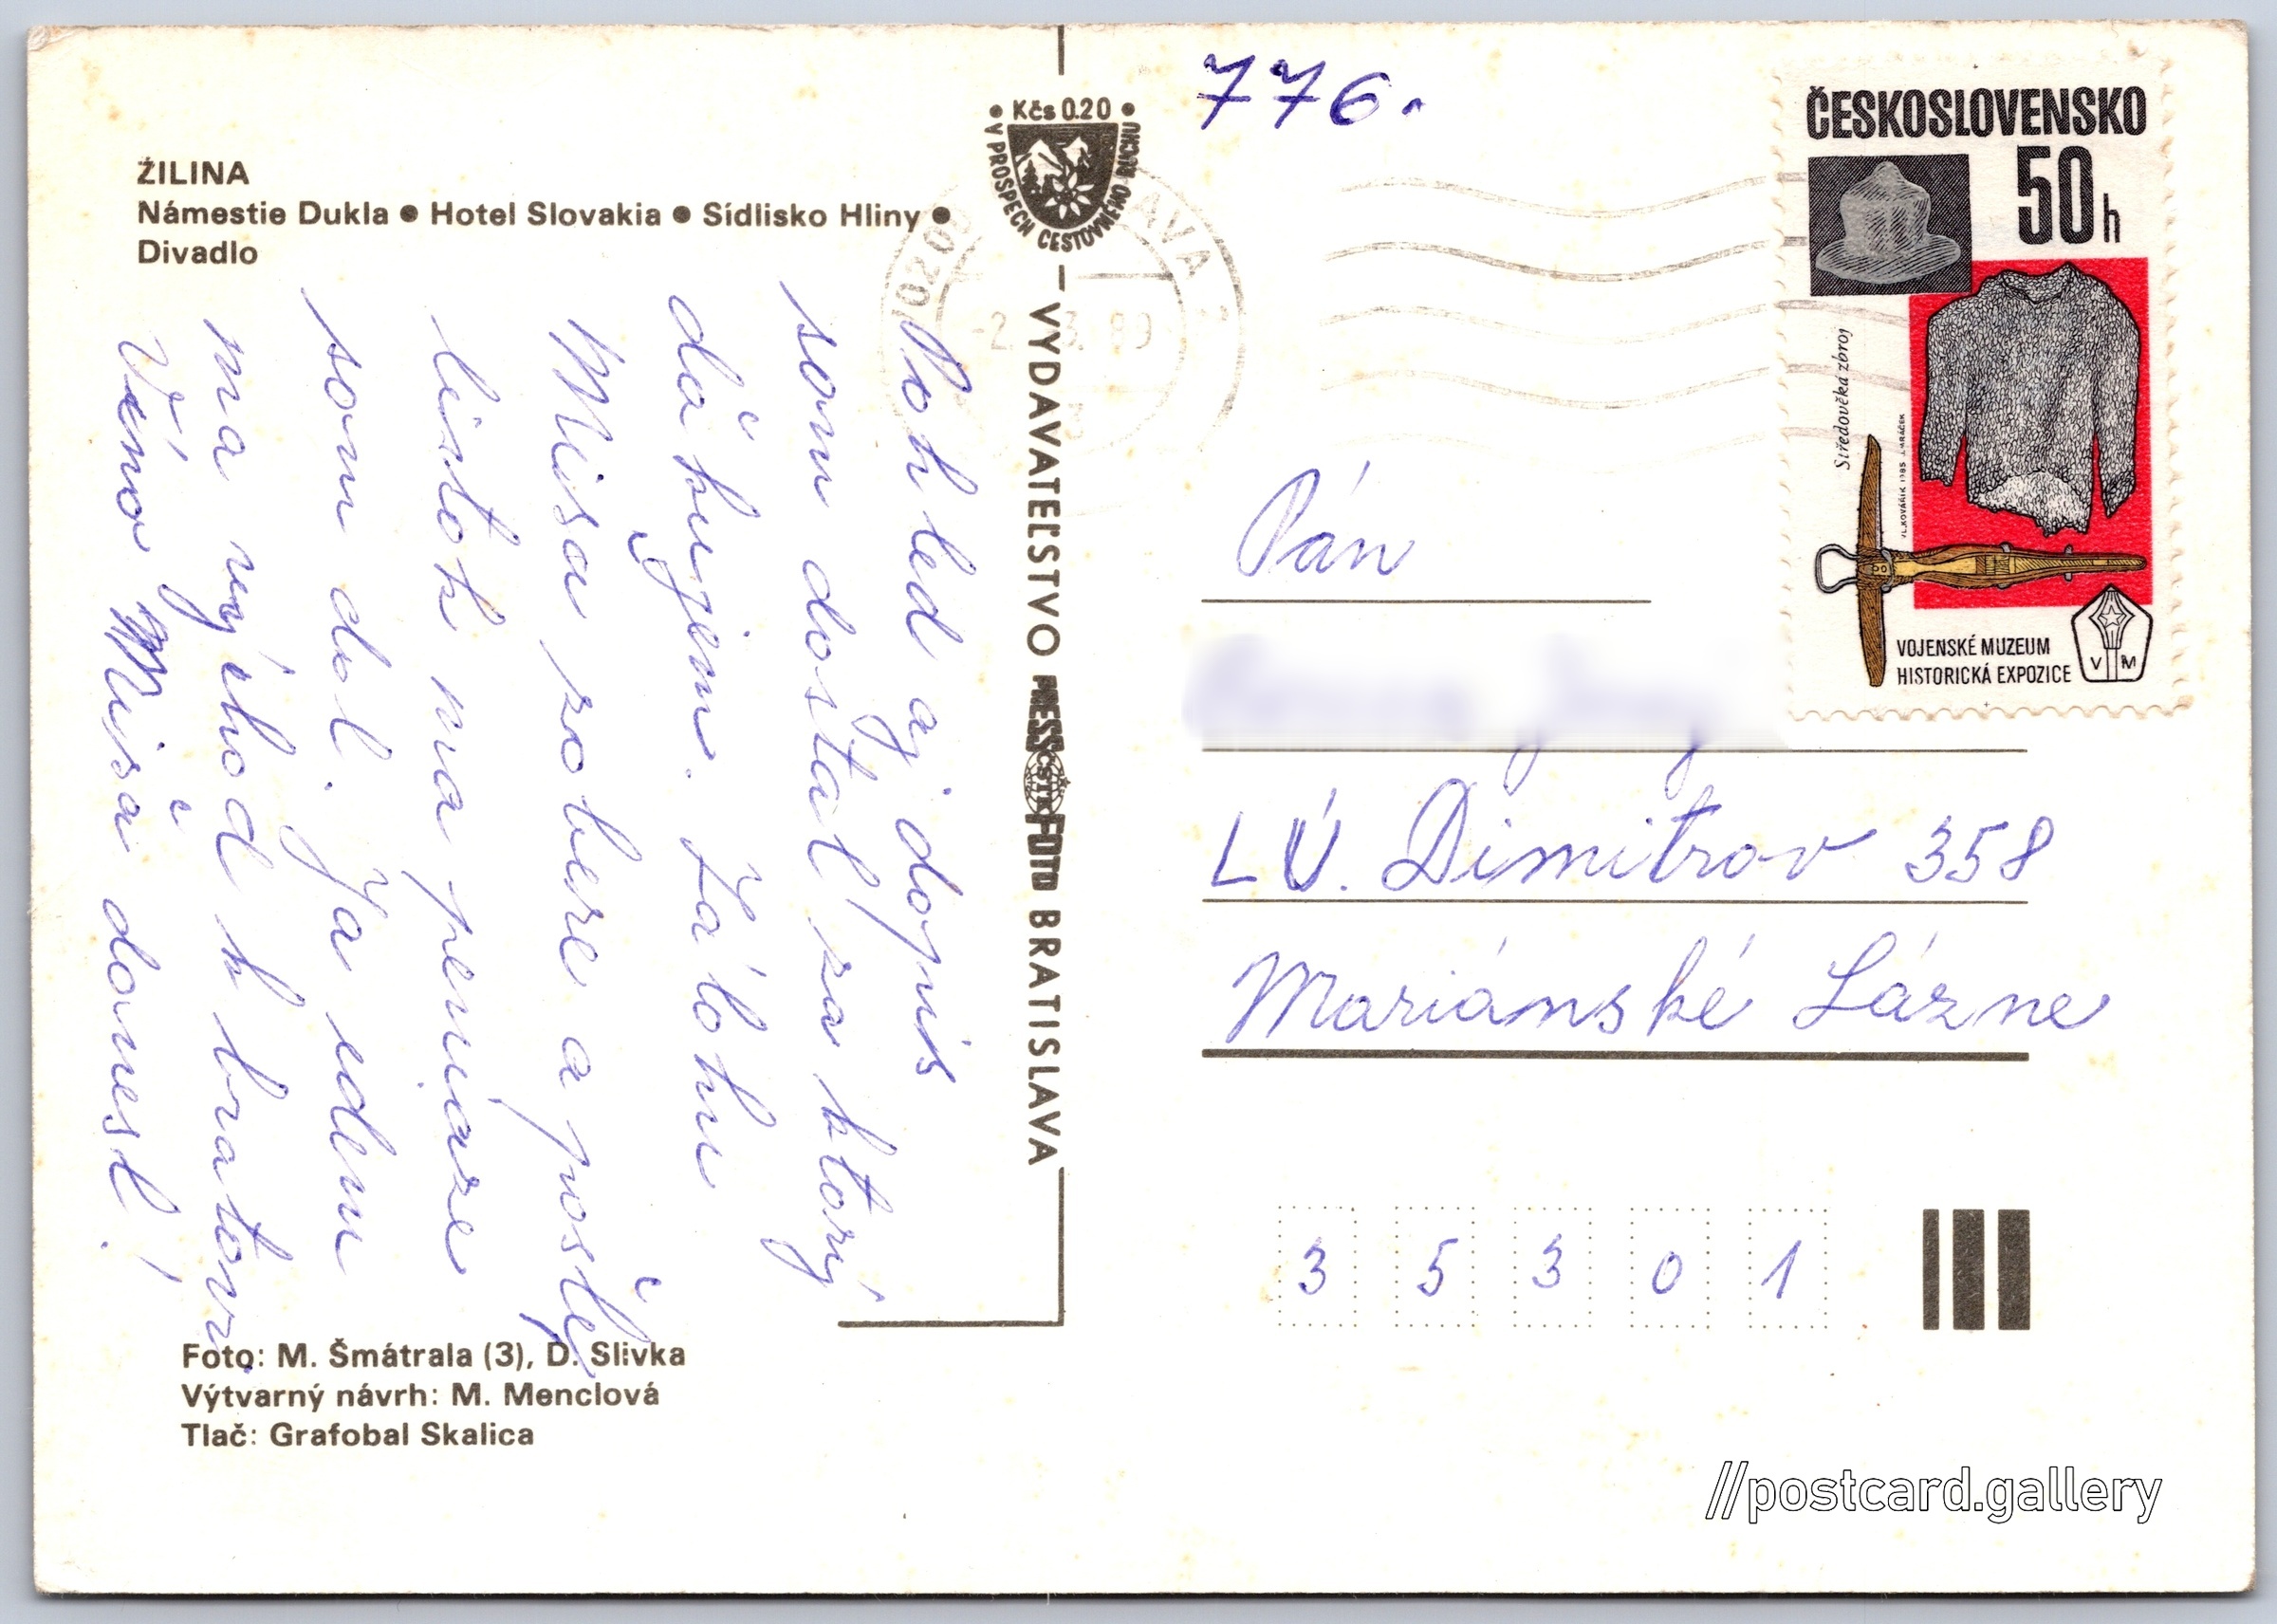 ŽILINA
Námestie Dukla ● Hotel Slovakia ● Sídlisko Hliny ●
Divadlo
Pohled aj dopis
som dostal za ktorý
ďakujem. Zálohu
Miša zobere a pošle
lístok na peniaze
som dal. Ja idem
na východ k bratovi
Véno Mišai doniesl!
Foto: M. Šmátrala (3), D. Slivka
Výtvarný návrh: M. Menclová
Tlač: Grafobal Skalica
• Kčs 0.20 •
V PROSPECH CESTOVNÉHO RUCHU
VYDAVATEĽSTVO PRESSFOTO BRATISLAVA
ČSTK
776.
ČESKOSLOVENSKO
50h
Středověká zbroj
VOJENSKÉ MUZEUM
HISTORICKÁ EXPOZICE
V M
Pán
LÚ. Dimitrov 358
Mariánské Lázne
3 5 3 0 1
//postcard.gallery